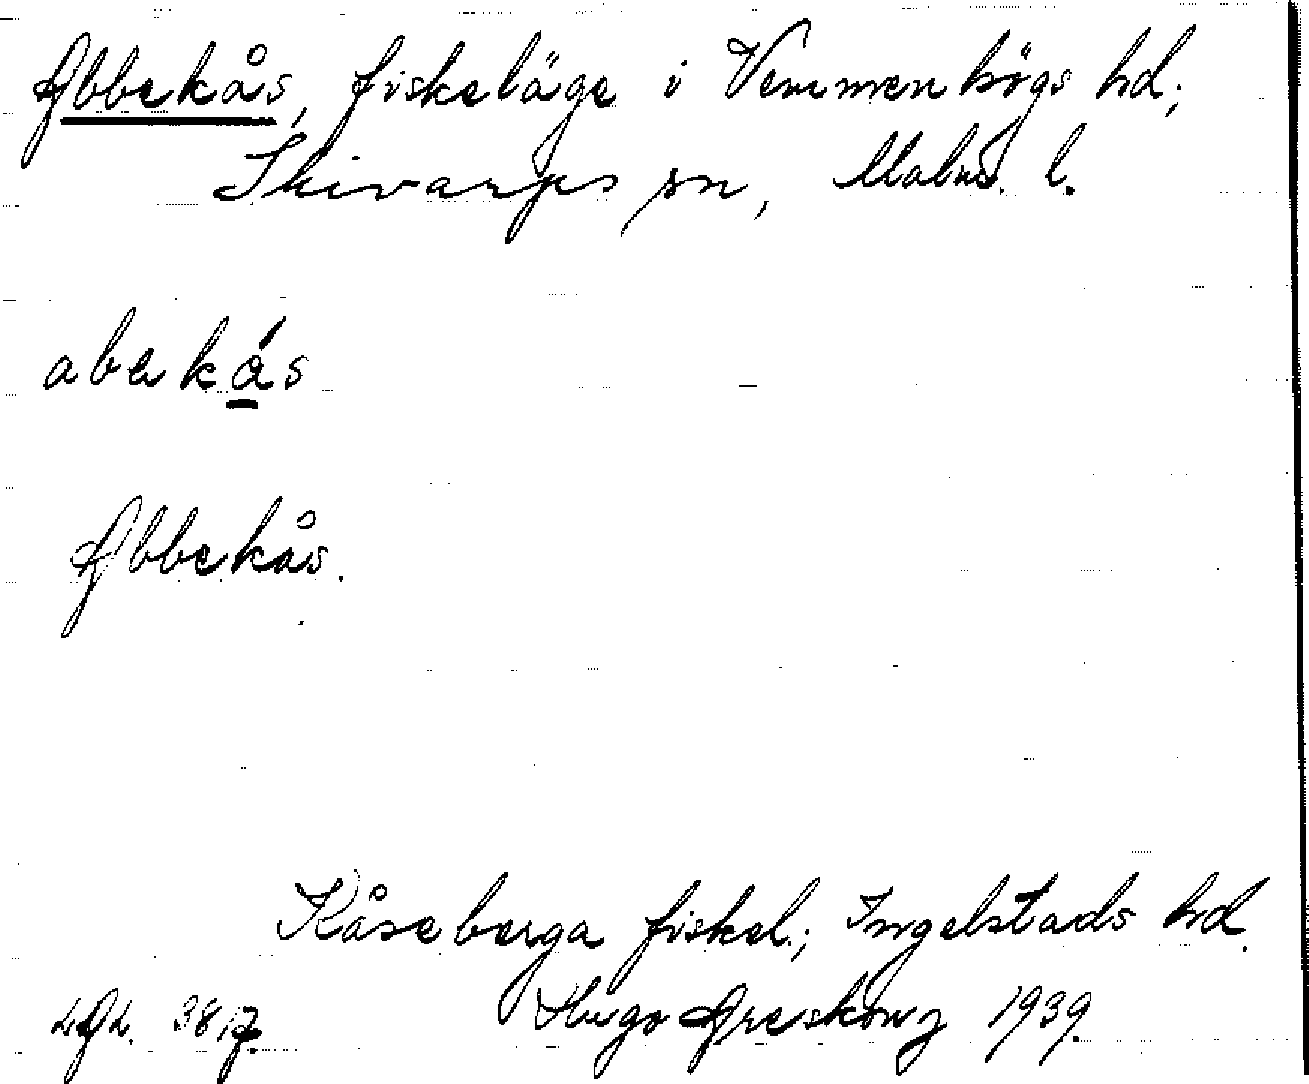 Abbekås, fiskeläge i Vemmenhögs hd;
Skivarps sn, Malmö. l.
abekås
Abbekås.
Kåseberga fiskel.; Ingelstads hd.
LAL. 3817. Hugo Areskoug 1939.